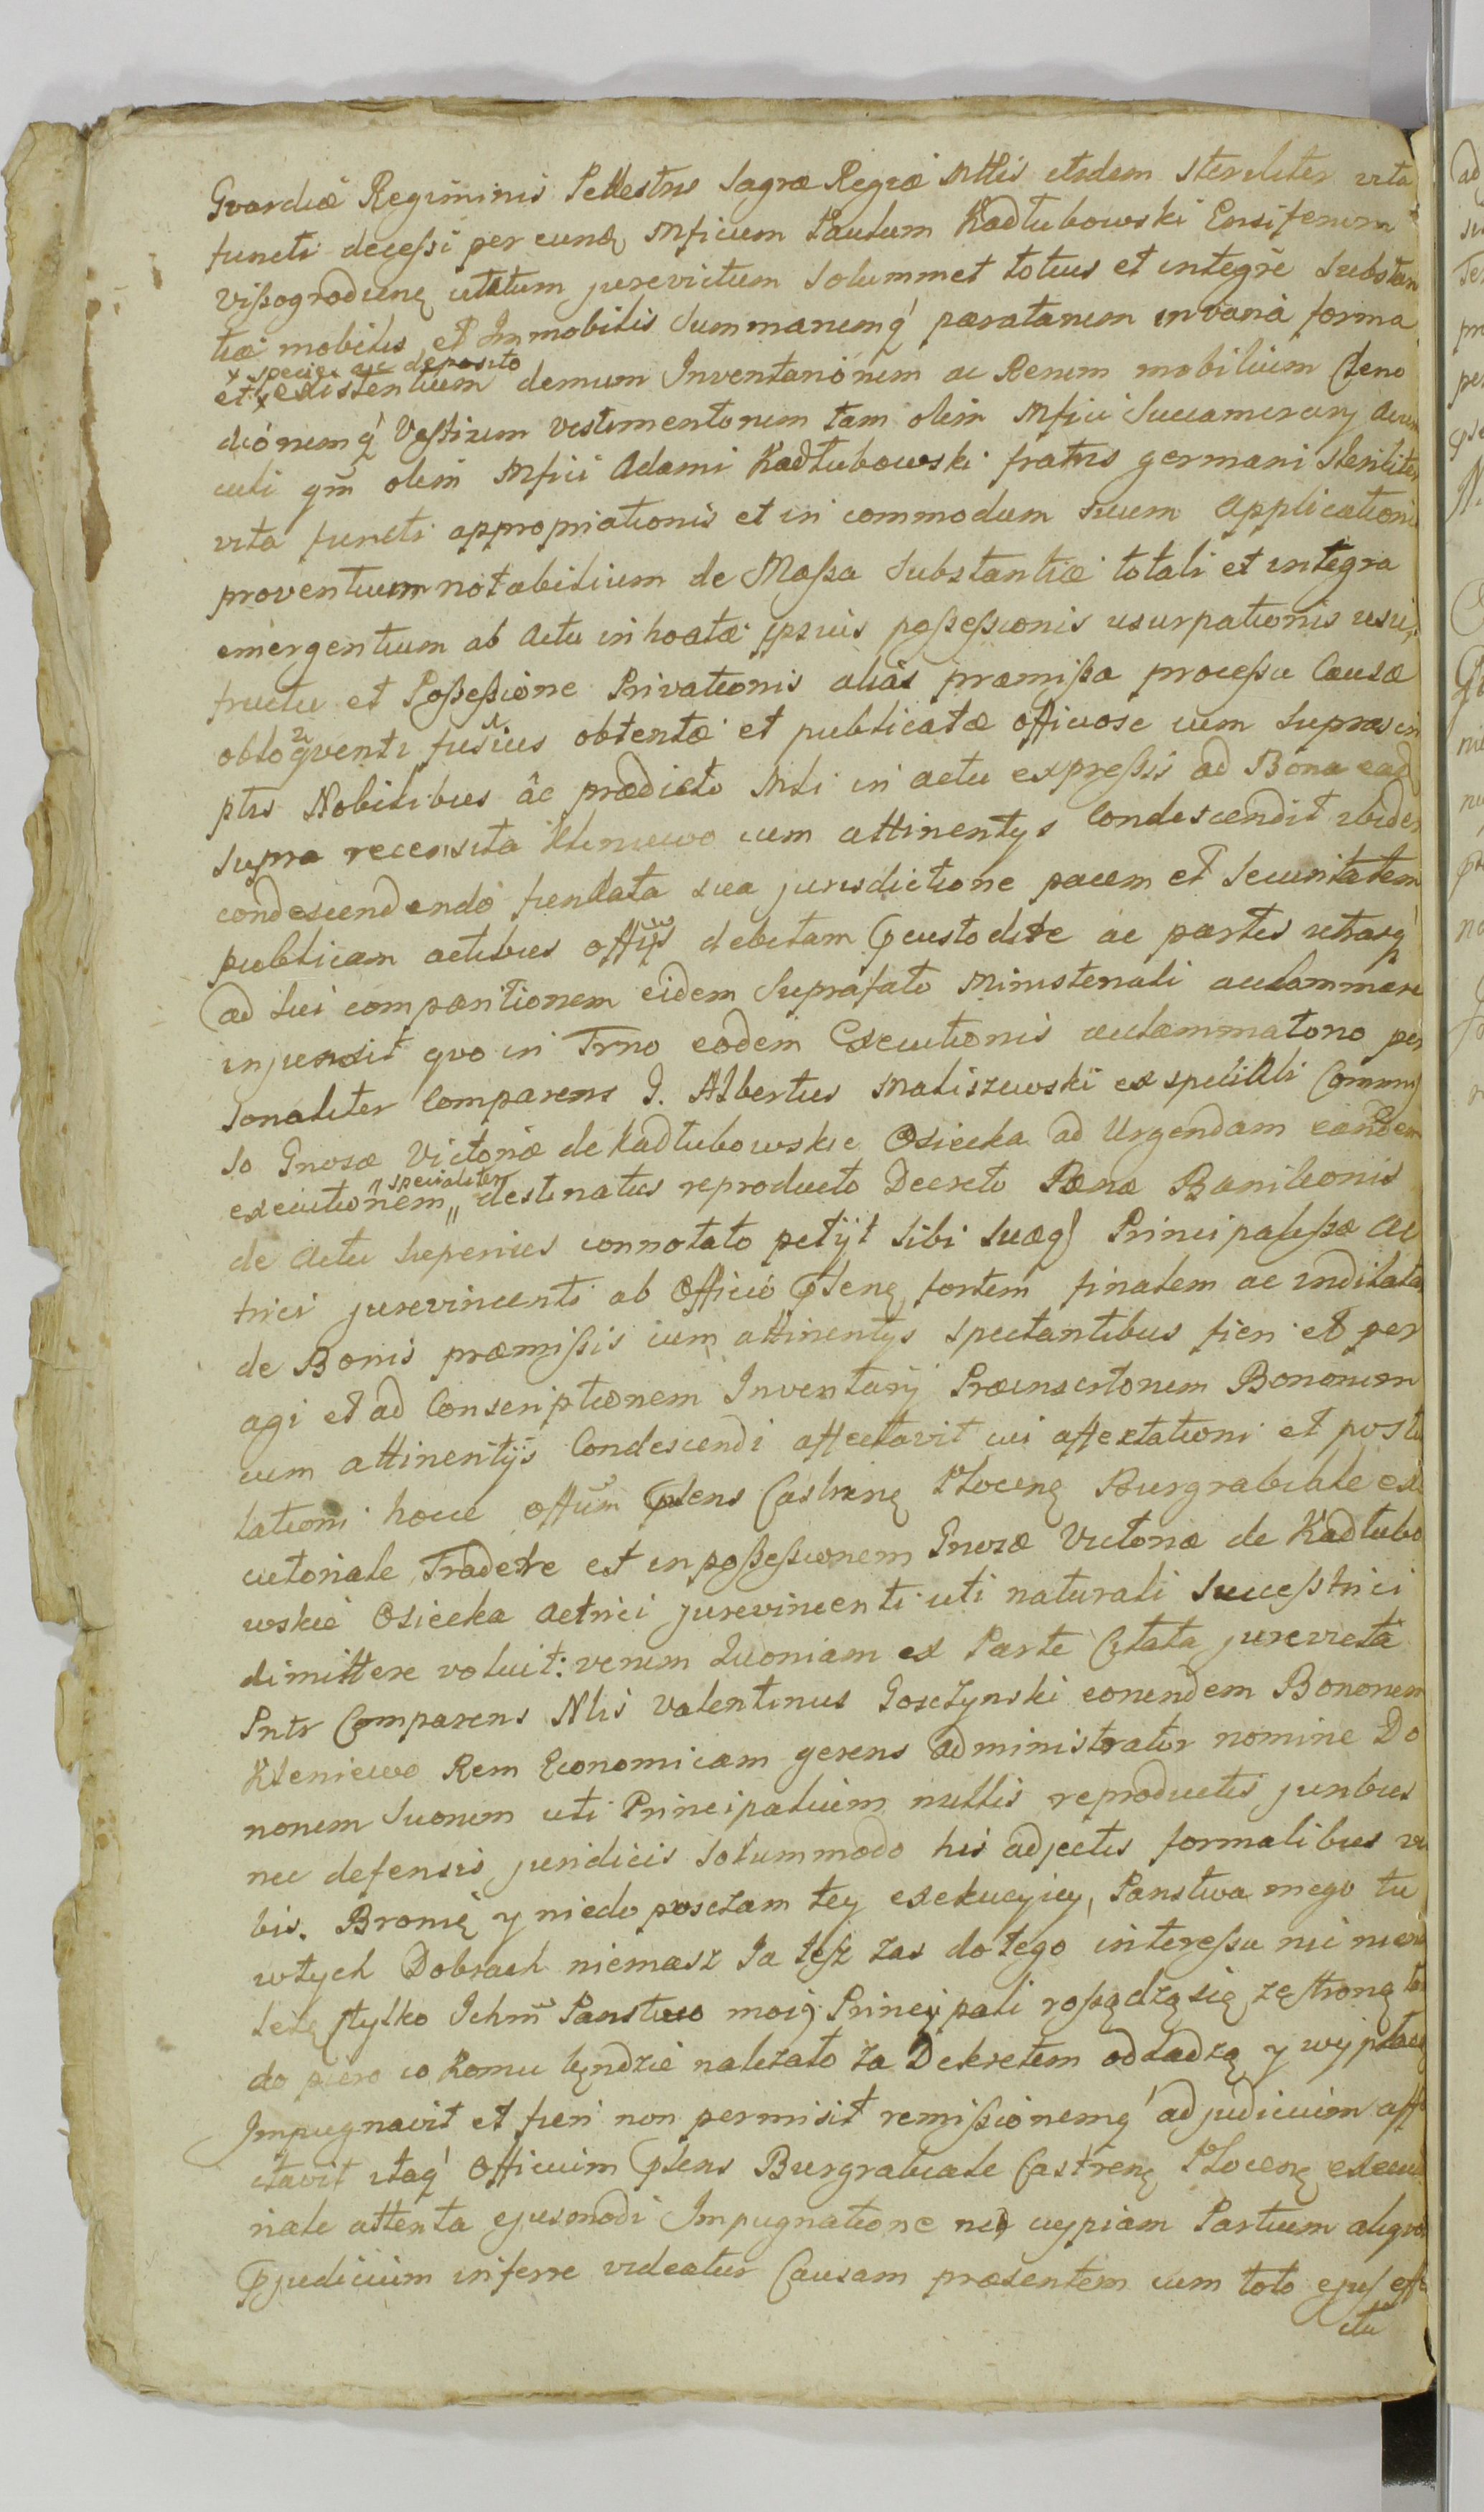 Gvardiæ Regiminis Pedestris Sagræ Regiæ Mttis itidem steriliter vita
functi decessi per eunḍ Mficum Paulum Kadłubowski Ensiferum
Vissogrodienę citatum jurevictum solummet totius et integrè Substan
tiæ mobilis et Immobilis Summarumq́ paratarum in varia forma
x specie ac deposito
et x existentium demum Inventariorum ac Rerum mobilium Cleno
diorumq́ Vestium vestimentorum tam olim Mfici Succamerarij Avun
culi qm̃ olim Mfici Adami Kadłubowski fratris germani Steriliter
vita functi appropriationis et in commodum suum applicationis
proventuum notabilium de Massa Substantiæ totali et integra
emergentium ab actu inhoatæ ipsius possessionis usurpationis usu,
fructu et Possessione Privationis aliàs præmissa processu Causæ
obloqventi fusius obtentæ et publicatæ officiose cum suprascri
ptis Nobilibus âc prædicto Mli in actu expressis ad Bona ead
supra recensita Kleniewo cum attinentys Condescendit ibidem
condescendendo fundata sua jurisdictione pacem et Securitatem
publicam actibus offijs debitam Pcustodire ac partes utrasq́
ad sui comparitionem eidem Suprafato Ministeriali acclammare
injunxit qvo in Trno eodem Executionis acclammatorio per
sonaliter Comparens G. Albertus Maliszewski ex speciali Commis
so Gnosæ Victoriæ de Kadłubowskie Osiecka ad Urgendam eandem
"specialiter
executionem" destinatus reproducto Decreto Pænæ Banitionis
de actu superius connotato petijt sibi suæq́ Principalissæ Ac
trici jurevincenti ab Officio Pstenę sortem finalem ac indilatam
de Bonis præmissis cum attinentys spectantibus fieri et per
agi et ad Conscriptionem Inventarij Præinsertorum Bonorum
cum attinentijs Condescendi affectavit cui affectationi et postu
lationi hocce offum Pstens Castrenę Płocenę Burgrabiale exe
cutoriale Tradere et in possessionem Gnosæ Victoriæ de Kadłubo
wskie Osiecka Actrici jurevincenti uti naturali Successtrici
dimittere voluit: verum Quoniam ex Parte Citata jurevicta
Pntr Comparens Nlis Valentinus Goszczynski eorundem Bonorum
Kleniewo Rem Economicam gerens administrator nomine Do
norum Suorum uti Principalium nullis reproductis juribus
nec defensis juridicis Solummodo his adjectis formalibus ver
bis. Bronię y niedopusczam tey exekucyiey, Panstwa mego tu
wtych Dobrach niemasz Ja tesz zas dotego interessu nic niena
leżę tylko Ichm Panstwo moię Princypali rosządzą się zęstroną to
do piero co komu będzie należało za Dekretem oddadzą y wypłacą
Impugnavit et fieri non permisit remissionemq́ ad judicium affe
ctavit itaq́ Officium Pstens Burgrabiale Castrenę Płocenę executo
riale attenta ejusmodi Impugnatione ne cuypiam Partium aliqvod
Pjudicium inferre videatur Causam præsentem cum toto ejus effe
ctu